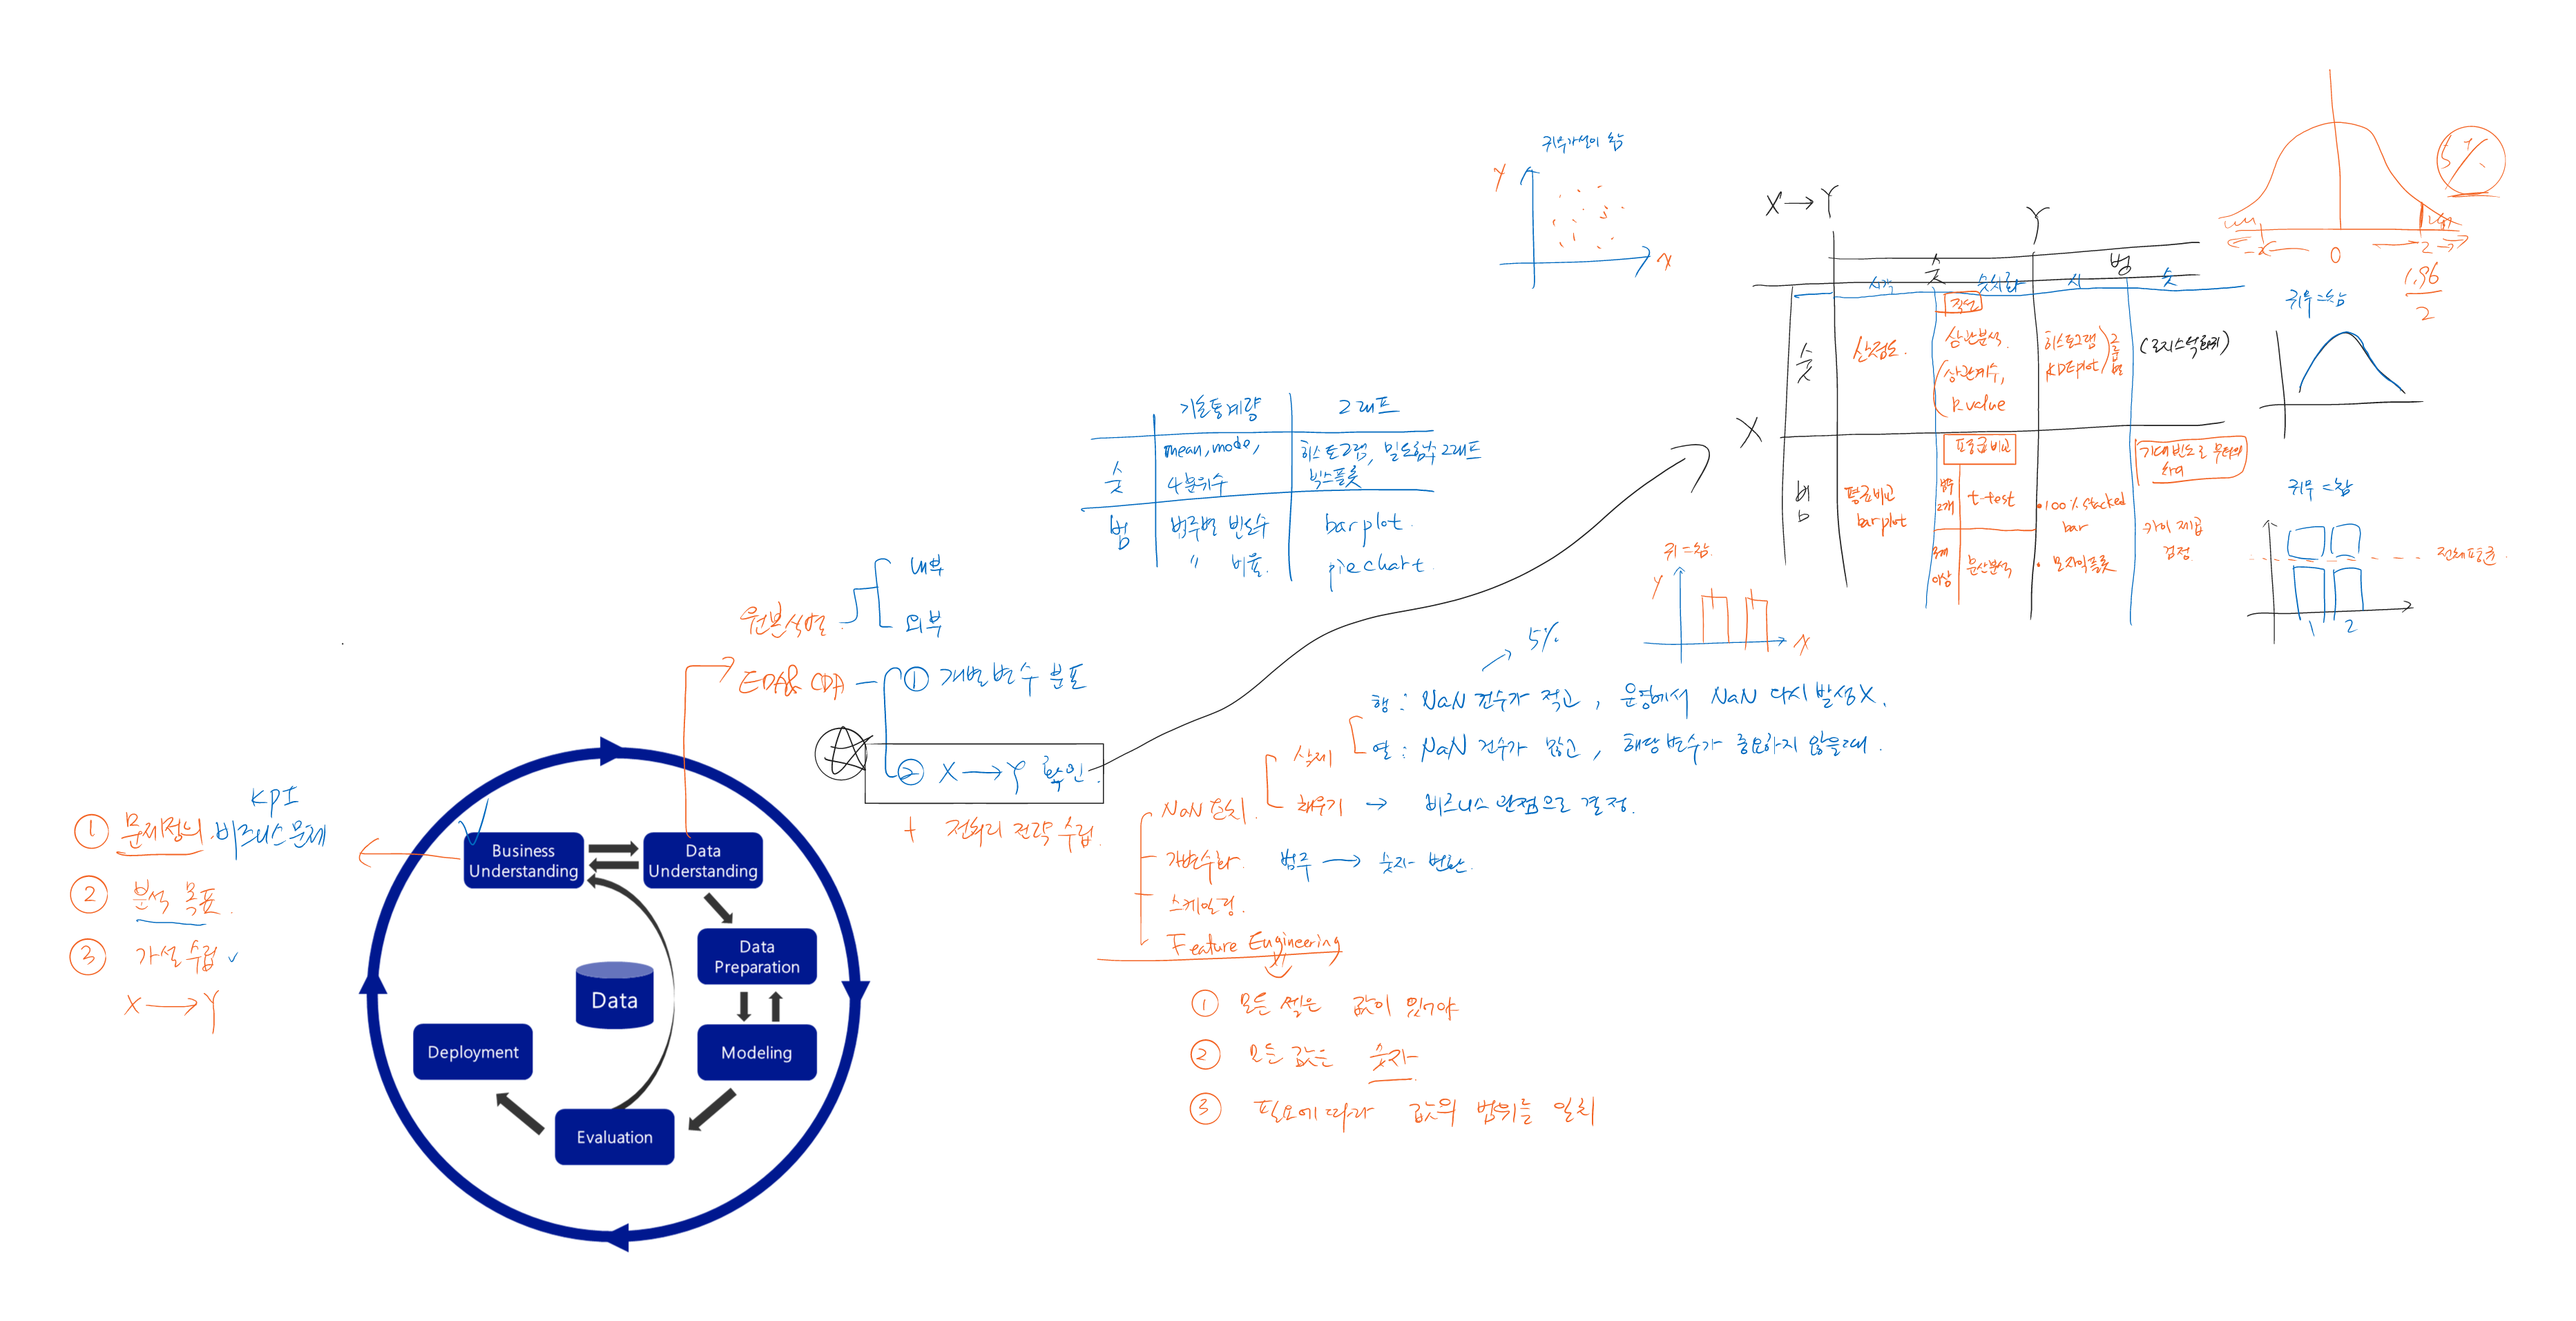 KPI
① 문제정의. 비즈니스 문제
② 분석 목표.
③ 가설 수립 ✓
X → Y
Business Understanding
Data Understanding
Data Preparation
Modeling
Evaluation
Deployment
Data
원본식별
내부
외부
EDA & CDA
① 개별변수 분포
② X → Y 확인.
+ 전처리 전략 수립.
기초통계량
그래프
숫
mean, mode,
4분위수
히스토그램, 밀도함수 그래프
박스플롯
범
범주별 빈도수
〃 비율.
bar plot.
pie chart.
NaN 조치.
삭제
행 : NaN 건수가 적고, 운영에서 NaN 다시 발생X.
→ 5%
열 : NaN 건수가 많고, 해당변수가 중요하지 않을때.
채우기 → 비즈니스 관점으로 결정.
가변수화. 범주 → 숫자 변환.
스케일링.
Feature Engineering
① 모든 셀은 값이 있어야
② 모든 값은 숫자
③ 필요에 따라 값의 범위를 일치
귀무가설이 참
Y
X
X → Y
Y
숫
범
시각
수치화
시
숫
X
숫
산점도.
직선
상관분석.
(상관계수,
p.value
히스토그램
KDEplot
그룹별
(로지스틱회귀)
범
평균비교
barplot
평균비교
범주
2개
t-test
3개
이상
분산분석
• 100% Stacked
bar
• 모자익플롯
기대빈도로 부터의
차이
카이 제곱
검정
귀=참.
Y
X
5%
0
2
1.96
2
귀무=참
귀무=참
전체평균
1
2